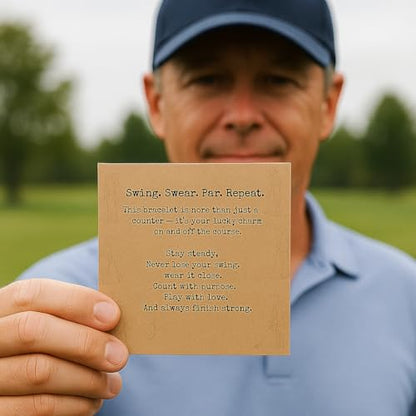 Swing. Swear. Par. Repeat.
This bracelet is more than just a
counter — it's your lucky charm
on and off the course.
Stay steady,
Never lose your swing,
wear it close.
Count with purpose.
Play with love.
And always finish strong.